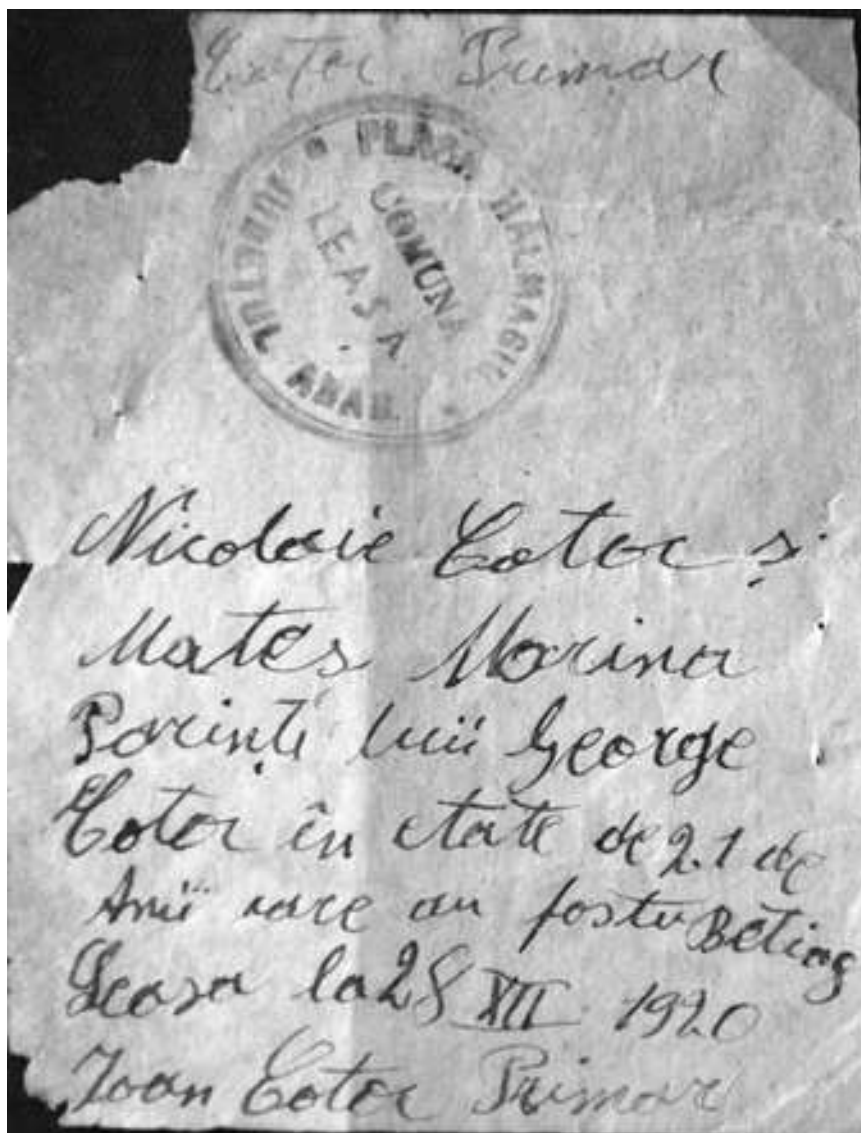 Cotoc Primar
JUDEȚUL ARAD PLASA HALMAGIU
COMUNA
LEASA
Nicolaie Cotoc și
Mateș Marina
Parinți luii George
Cotoc în etate de 21 de
Anii care au fostu Bětiag
Leasa la 28 XII 1920
Ioan Cotoc Primar